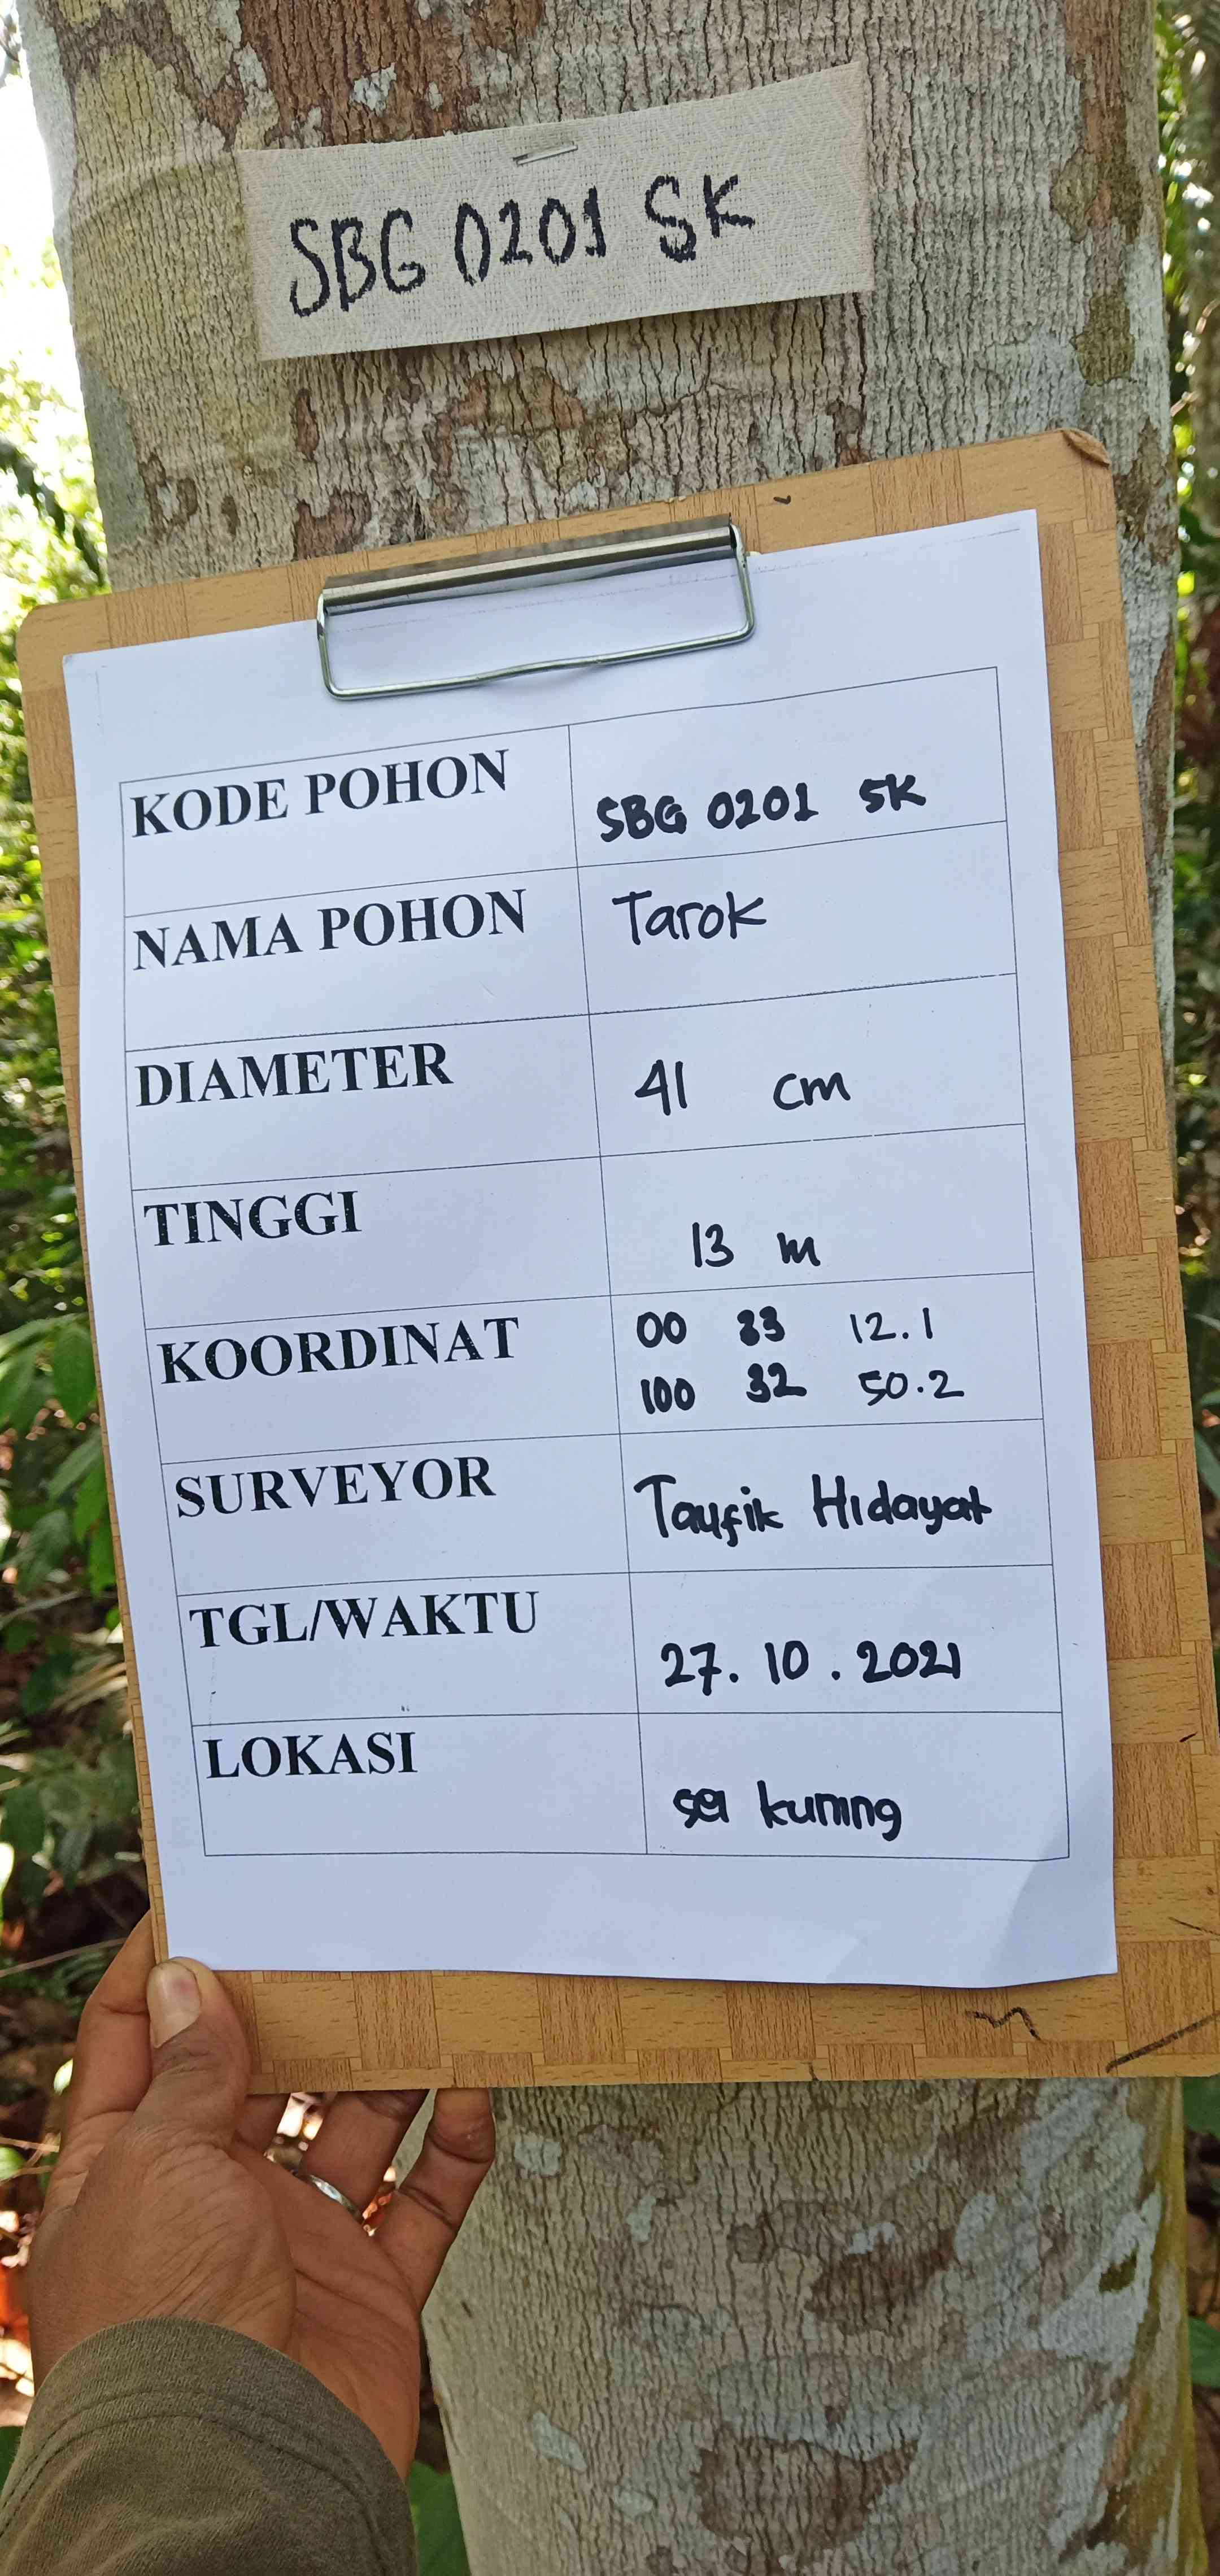 SBG 0201 SK
KODE POHON SBG 0201 SK
NAMA POHON Tarok
DIAMETER 41 cm
TINGGI 13 m
KOORDINAT 00 33 12.1
100 32 50.2
SURVEYOR Taufik Hidayat
TGL/WAKTU 27.10.2021
LOKASI sei kuning